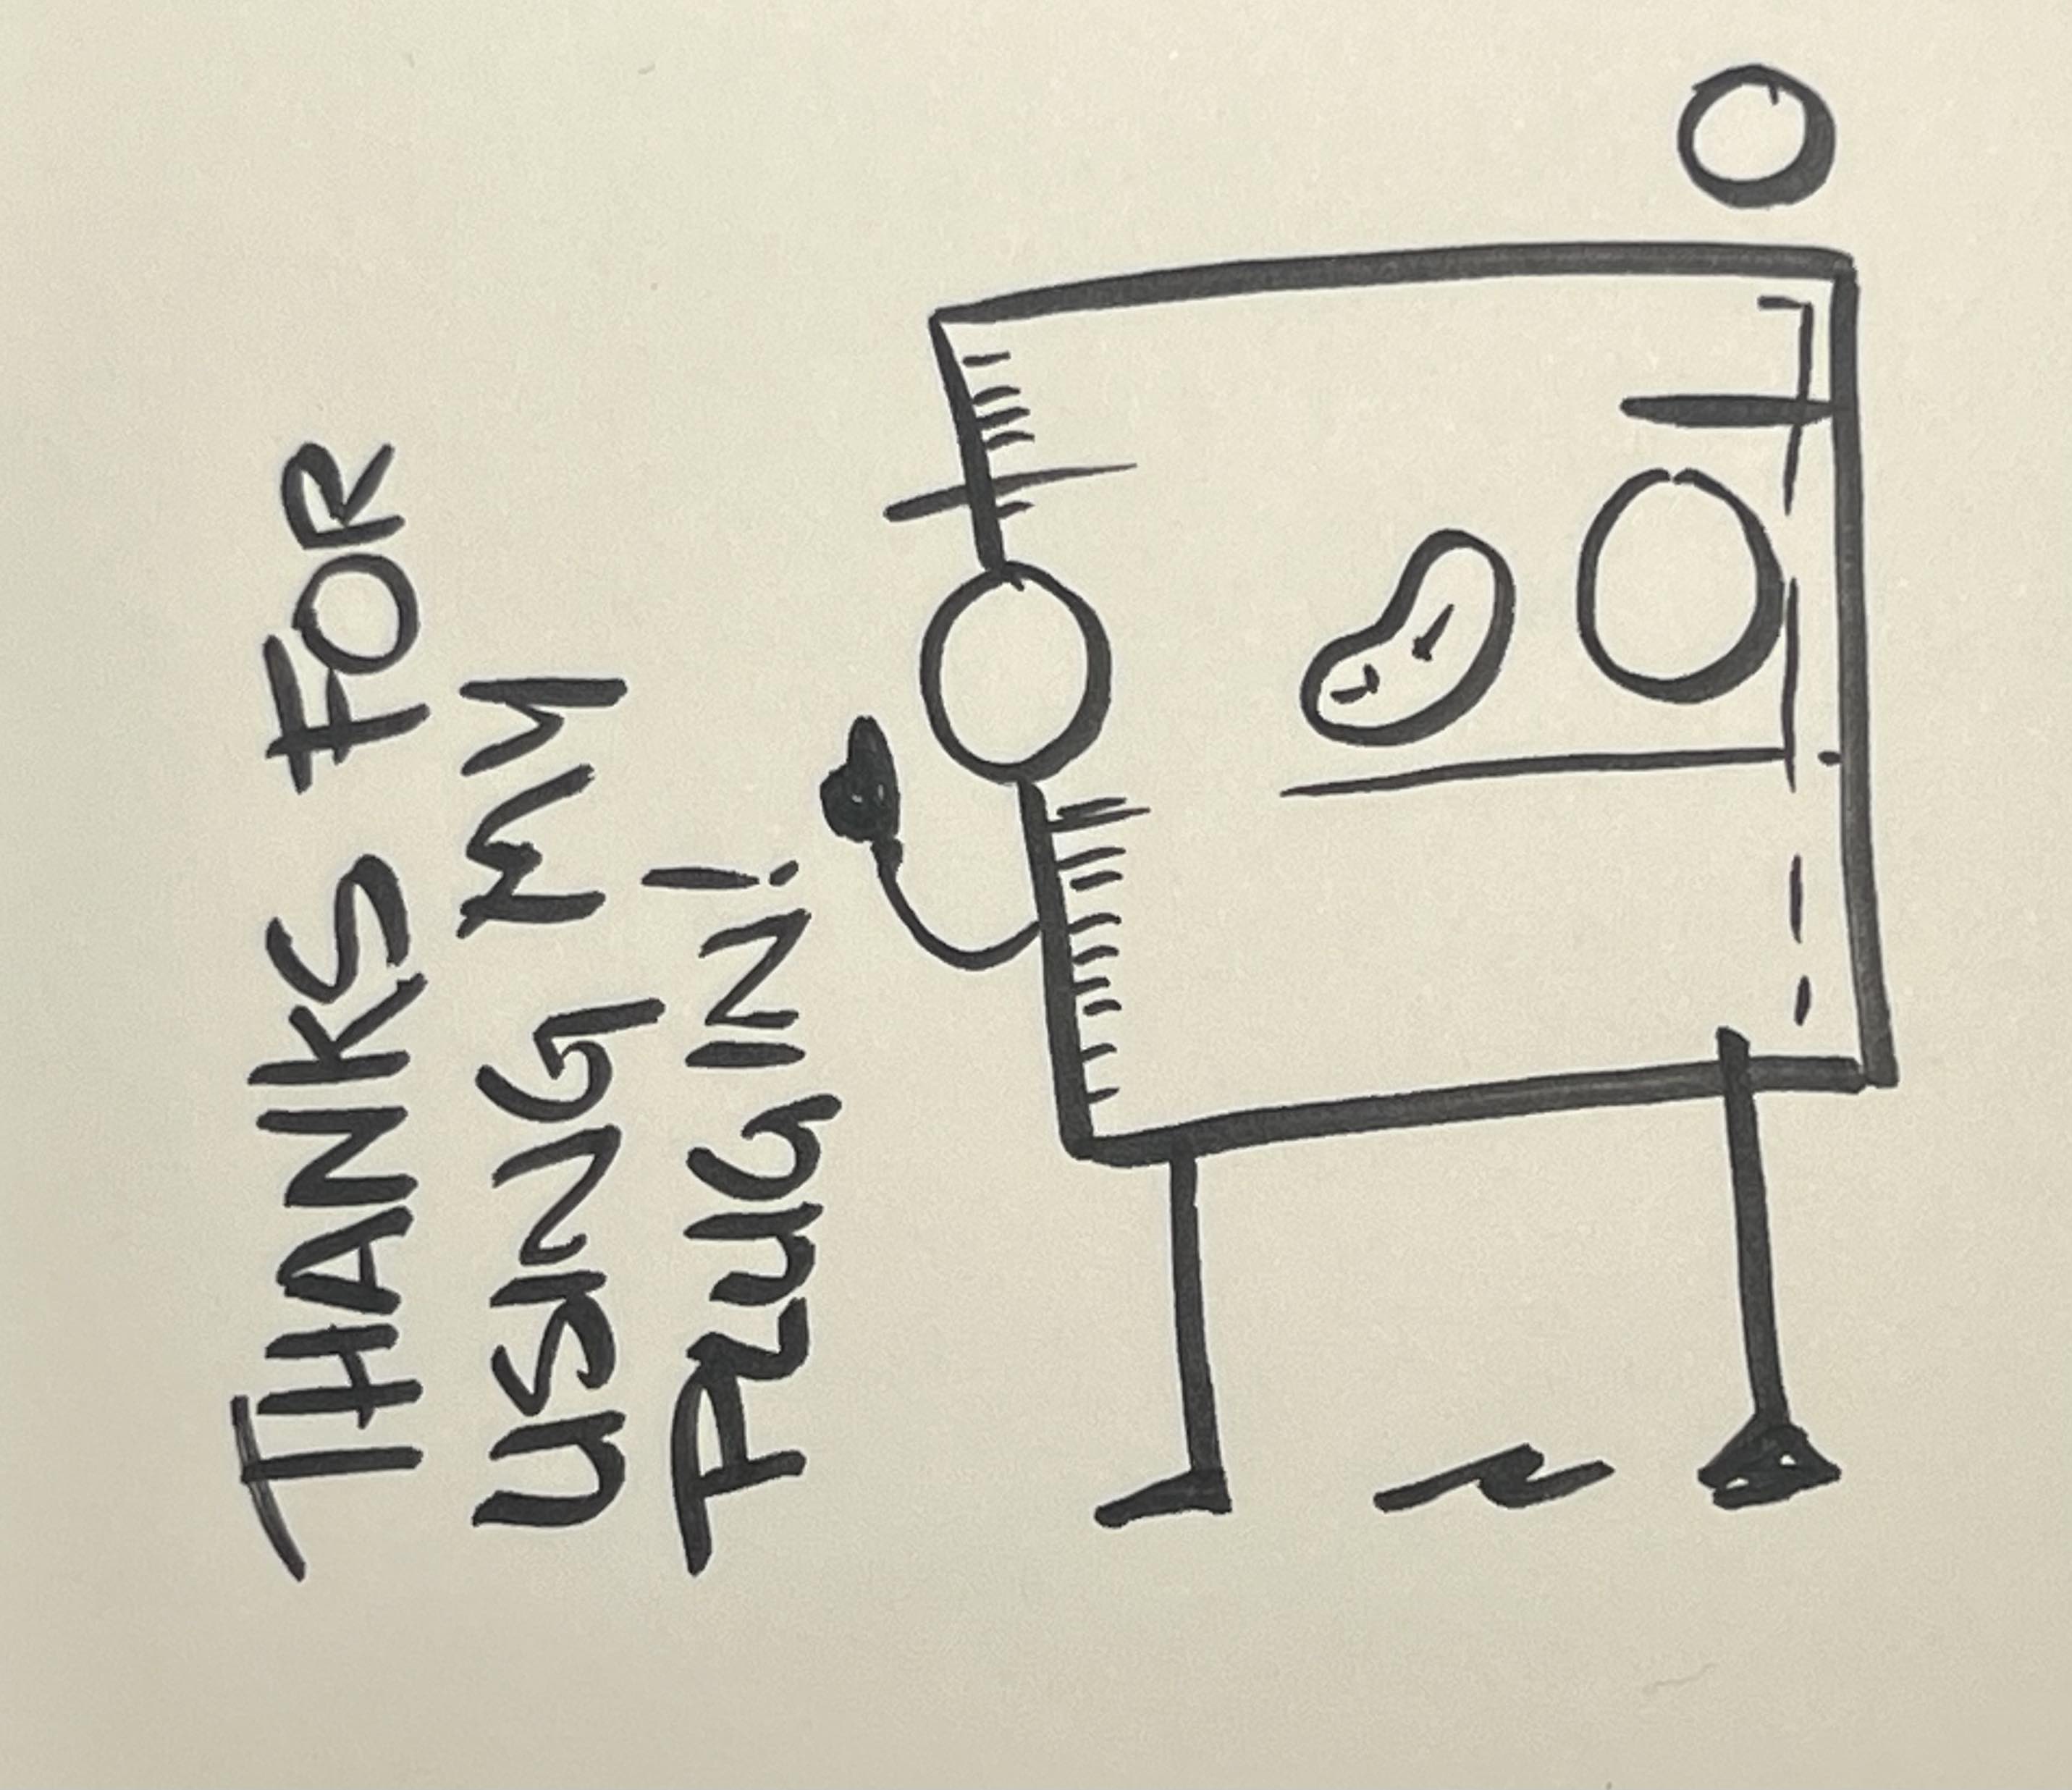 THANKS FOR
USING MY
PLUGIN!